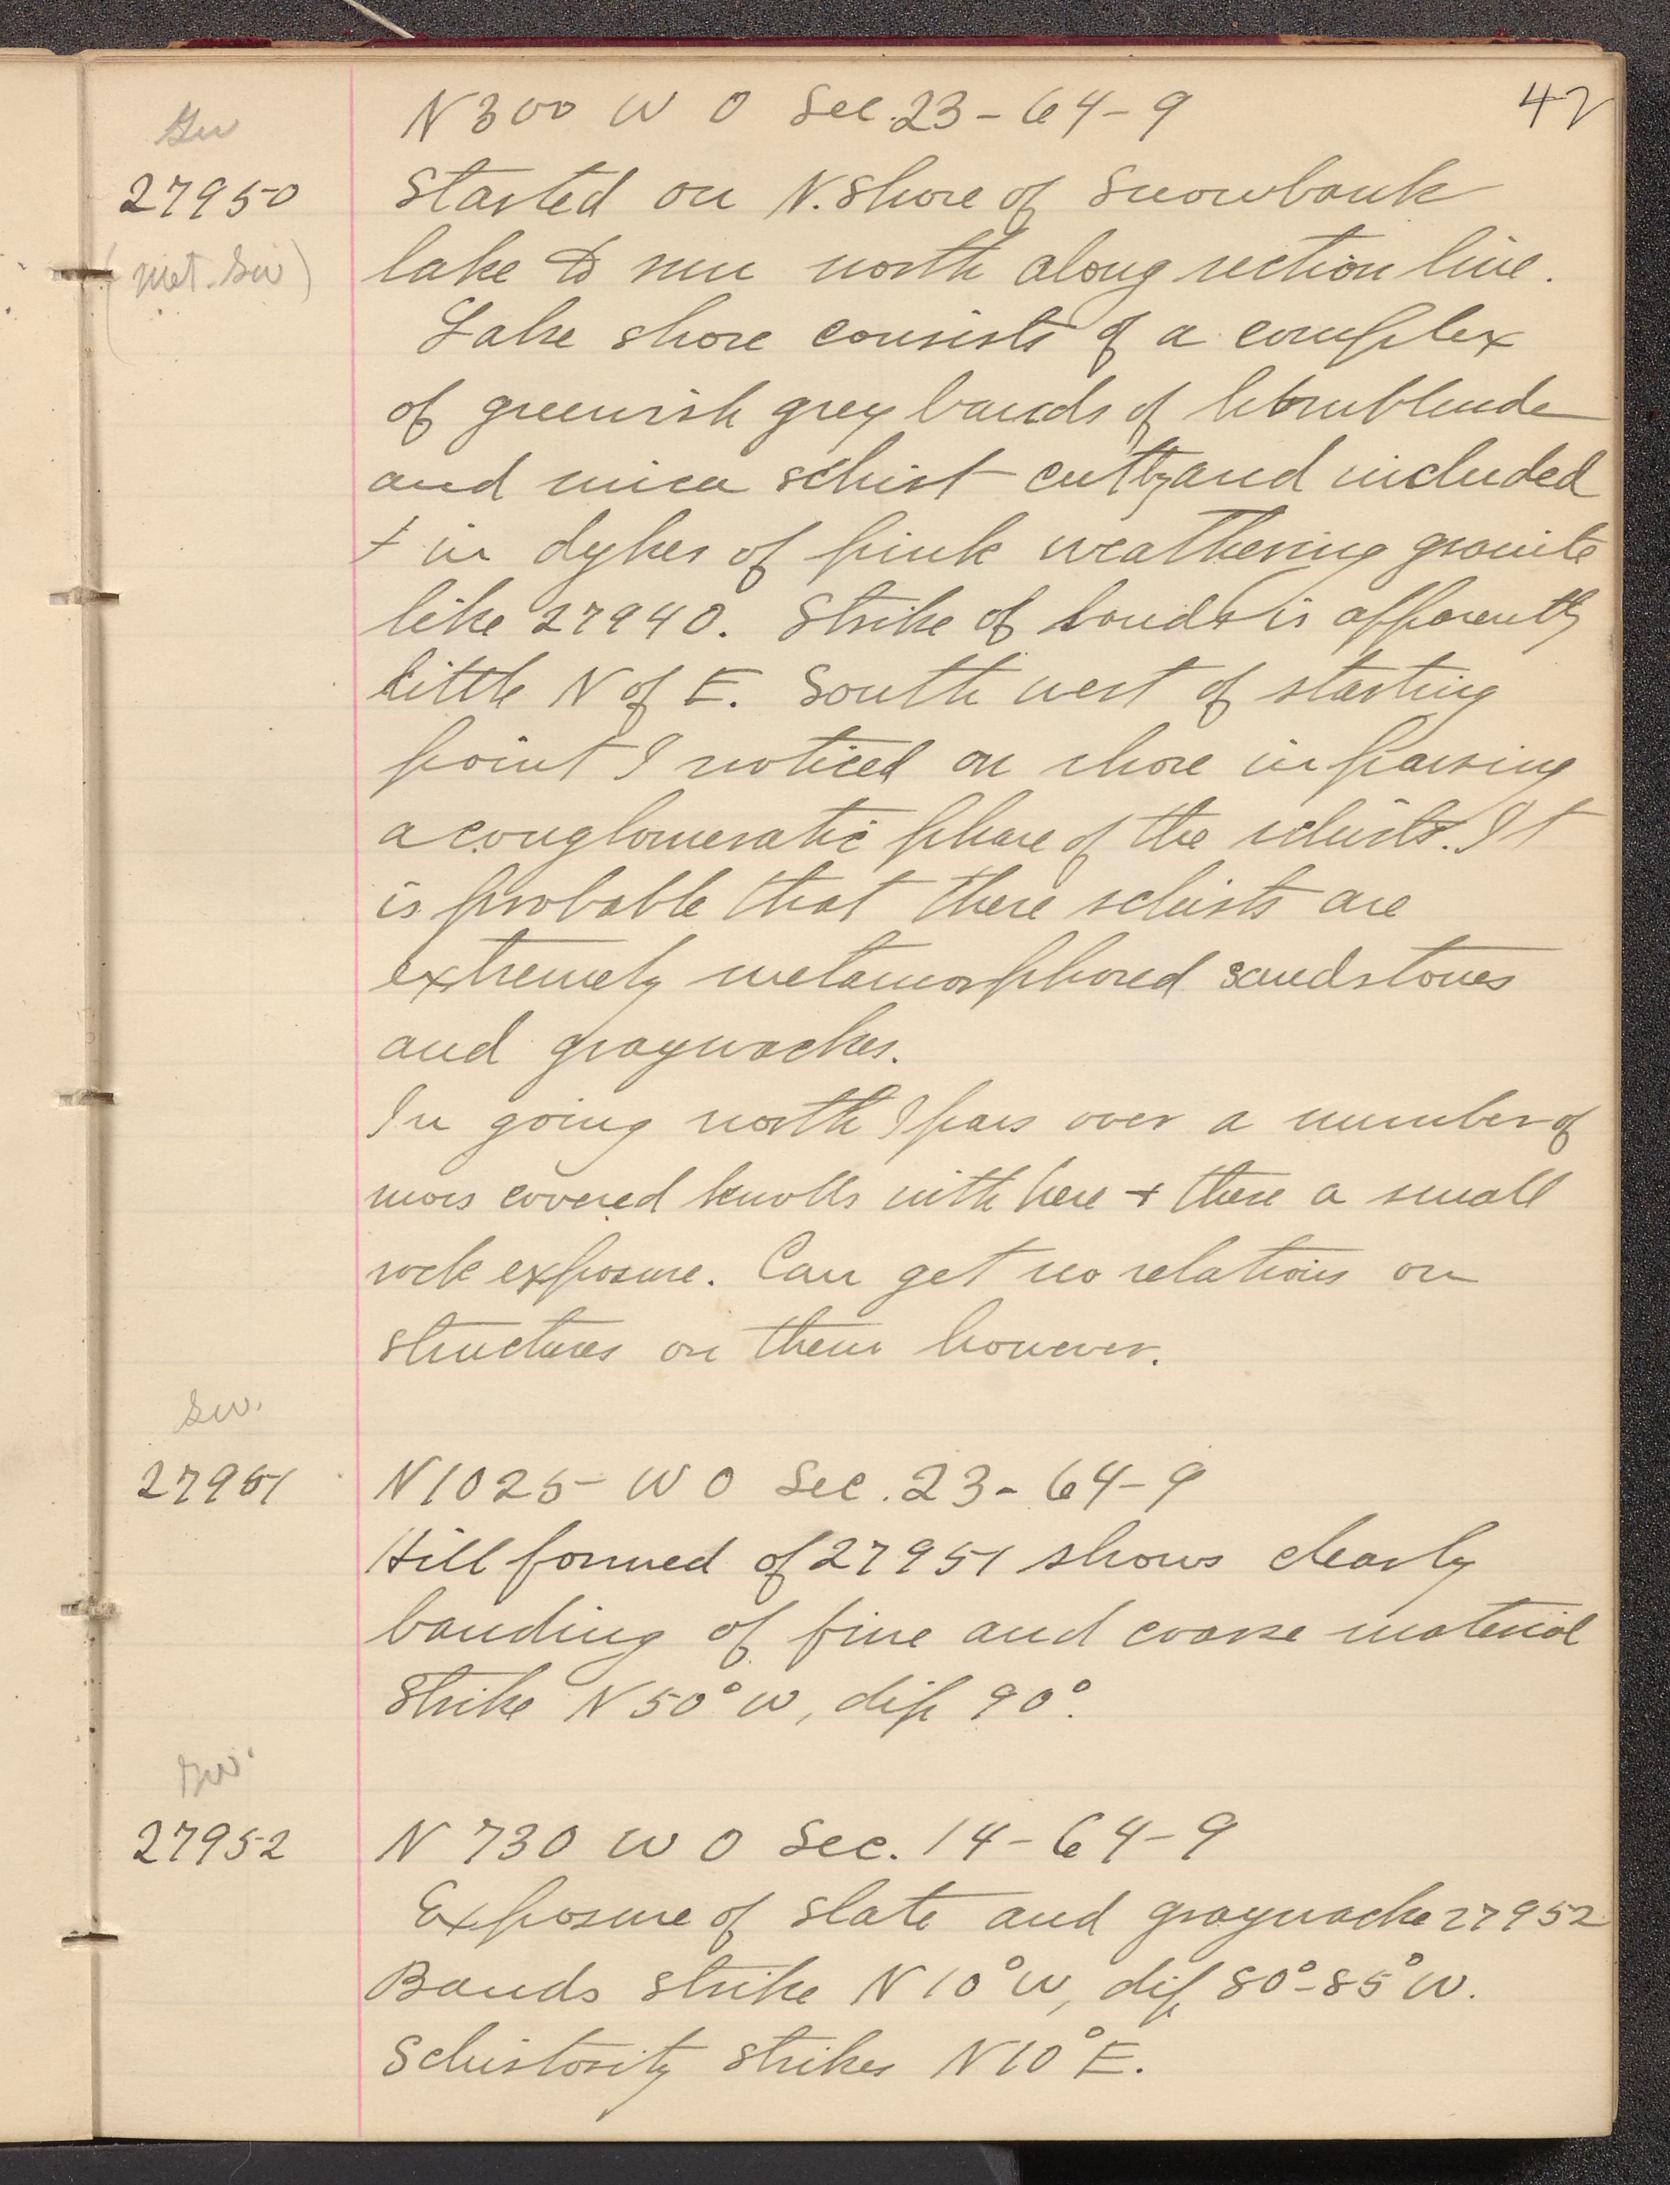 42
N 300 W 0 Sec. 23-64-9
Gw
27950
(met. Gw)
Started on N. Shore of Snowbank
lake to run north along section line.
Lake shore consists of a complex
of greenish grey bands of hornblende
and mica schist cut by and included
+ in dykes of pink weathering granite
like 27940. Strike of bands is apparently
little N of E. South west of starting
point I noticed on shore in passing
a conglomeratic phase of the schists. It
is probable that these schists are
extremely metamorphosed sandstones
and graywackes.
In going north I pass over a number of
moss covered knolls with here + there a small
rock exposure. Can get no relations or
structures on them however.
Gw.
27951
N 1025 W 0 Sec. 23-64-9
Hill formed of 27951 shows clearly
banding of fine and coarse material
Strike N 50° W, dip 90°.
Gw.
27952
N 730 W 0 Sec. 14-64-9
Exposure of slate and graywacke 27952
Bands strike N 10° W, dip 80°-85° W.
Schistosity strikes N 10° E.